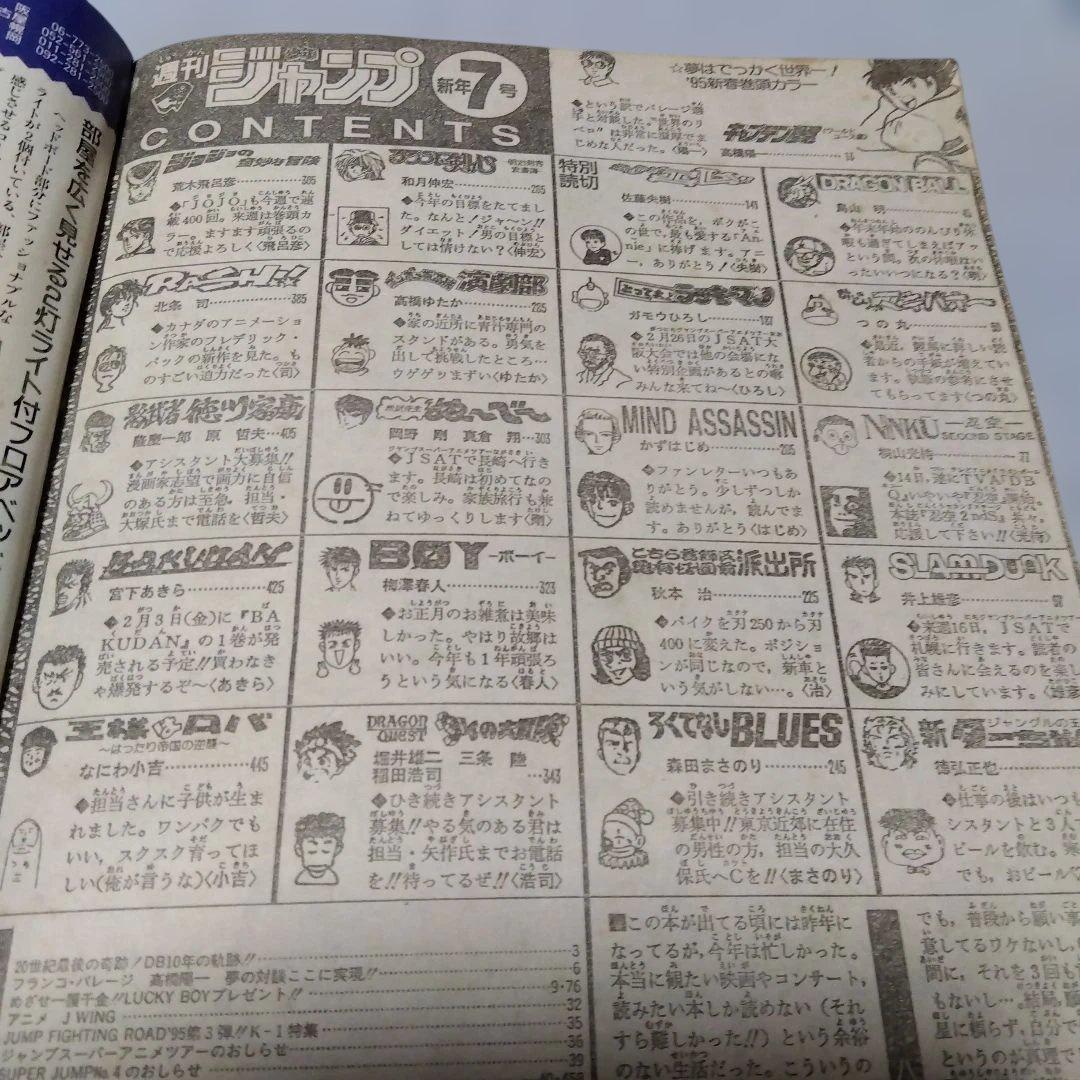 週刊少年ジャンプ
新年7号
CONTENTS
☆夢はでっかく世界一!
'95新春巻頭カラー
◆という訳でバレージ選
手と対談した。世界のリ
ベロは非常に温厚でま
じめな人だった。〈陽一〉
キャプテン翼
高橋陽一
ジョジョの奇妙な冒険
荒木飛呂彦……305
◆「JOJO」も今週で連
載400回。来週は巻頭カ
ラー。ますます頑張るの
で応援よろしく〈飛呂彦〉
るろうに剣心
明治剣客浪漫譚
和月伸宏
◆今年の目標をたてまし
た。なんと!ジャ~ン!!
ダイエット!男の目標と
しては情けない?〈伸宏〉
特別読切
佐藤矢樹……141
この作品を、ボクがこ
の世で、最も愛する「An-
nie」に捧げます。アニ
ー、ありがとう!〈矢樹〉
DRAGON BALL
鳥山 明
RASH!!
北条 司……385
◆カナダのアニメーショ
ン作家のフレデリック・
バックの新作を見た。も
のすごい迫力だった〈司〉
演劇部
高橋ゆたか
◆家の近所に青汁専門の
スタンドがある。勇気を
出して挑戦したところ…
ウゲゲッまずい〈ゆたか〉
とってもラッキーマン
ガモウひろし……187
◆2月26日のJSAT大
阪大会では他の会場にな
い特別企画があるとの噂
みんな来てね~〈ひろし〉
みどりのマキバオー
つの丸
◆最近、競馬に詳しい読
者からの手紙が増えてい
ます。執筆の参考にさせ
てもらってます〈つの丸〉
影武者徳川家康
隆慶一郎 原 哲夫…405
◆アシスタント大募集!!
漫画家志望で画力に自信
のある方は至急、担当・
大塚氏まで電話を〈哲夫〉
地獄先生ぬ~べ~
岡野 剛 真倉 翔…303
◆JSATで長崎へ行き
ます。長崎は初めてなの
で楽しみ。家族旅行も兼
ねてゆっくりします〈剛〉
MIND ASSASSIN
かずはじめ
◆ファンレターいつもあ
りがとう。少しずつしか
読めませんが、読んでま
す。ありがとう〈はじめ〉
NINKU―忍空―
SECOND STAGE
桐山光侍……77
応援して下さい!!〈光侍〉
BAKUDAN
宮下あきら……425
◆2月3日(金)に『BA
KUDAN』の1巻が発
売される予定!!買わなき
や爆発するぞ~〈あきら〉
BØY―ボーイ―
梅澤春人……323
◆お正月のお雑煮は美味
しかった。やはり故郷は
いい。今年も1年頑張ろ
うという気になる〈春人〉
こちら葛飾区亀有公園前派出所
秋本 治……225
◆バイクを刀250から刀
400に変えた。ポジショ
ンが同じなので、新車と
いう気がしない…。〈治〉
SLAM DUNK
井上雄彦
◆来週16日、JSATで
札幌に行きます。読者の
皆さんに会えるのを楽し
みにしています。〈雄彦〉
王様はロバ
~はったり帝国の逆襲~
なにわ小吉……445
◆担当さんに子供が生ま
れました。ワンパクでも
いい、スクスク育ってほ
しい(俺が言うな)〈小吉〉
DRAGON QUEST ダイの大冒険
堀井雄二 三条 陸
稲田浩司……343
◆ひき続きアシスタント
募集!!やる気のある君は
担当・矢作氏までお電話
を!!待ってるぜ!!〈浩司〉
ろくでなしBLUES
森田まさのり……245
◆引き続きアシスタント
募集中!!東京近郊に在住
の男性の方、担当の大久
保氏へCを!!〈まさのり〉
ジャングルの王
新ター
徳弘正也
◆仕事の後はいつも
シスタントと3人で
ビールを飲む。
でも、おビール
20世紀最後の奇跡!DB10年の軌跡!!……3
フランコ・バレージ 高橋陽一 夢の対談ここに実現!!……6
めざせ一攫千金!!LUCKY BOYプレゼント!!……9・76
アニメ J WING……32
JUMP FIGHTING ROAD'95第3弾!!K-1特集……35
ジャンプスーパーアニメツアーのおしらせ……36
SUPER JUMP No.4のおしらせ……39
この本が出てる頃には昨年に
なってるが、今年は忙しかった。
本当に観たい映画やコンサート、
読みたい本しか読めない(それ
すら難しかった!!)という余裕
のない生活だった。こういうの
でも、普段から願い事
意してるワケないし、
間に、それを3回も
もないし…。結局、願
星に頼らず、自分で
というのが真理で
部屋を広く見せる2灯ライト付フロアベッド
ヘッドボード部分にファッショナブルな
ライトが2個付いている、部屋
感じさせるフロ